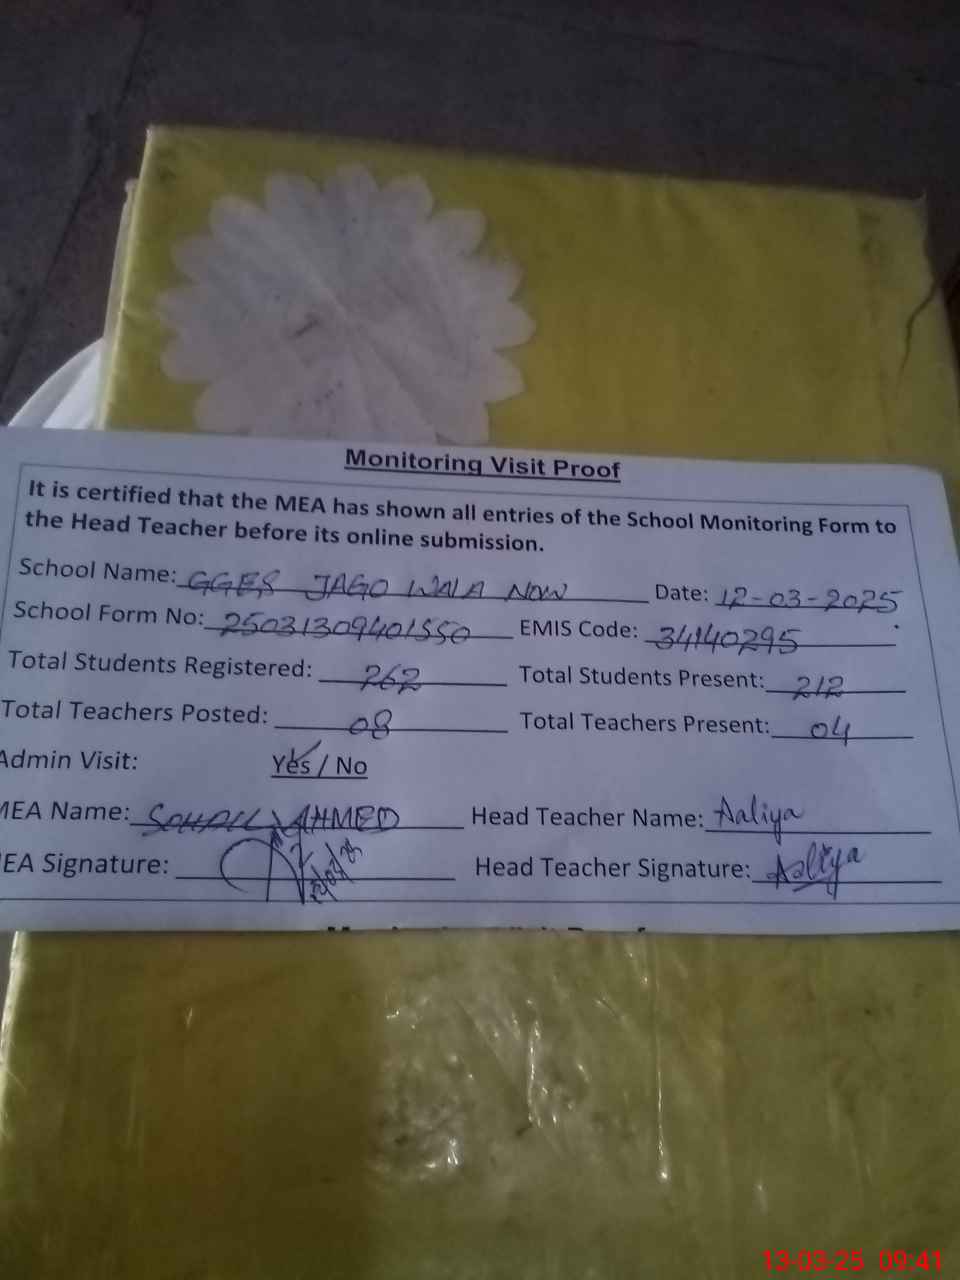 Monitoring Visit Proof
It is certified that the MEA has shown all entries of the School Monitoring Form to
the Head Teacher before its online submission.
School Name: GGES JAGO WALA NOW Date: 12-03-2025
School Form No: 25031309401550 EMIS Code: 34140295
Total Students Registered: 262 Total Students Present: 212
Total Teachers Posted: 08 Total Teachers Present: 04
Admin Visit: Yes / No
MEA Name: SOHAIL AHMED Head Teacher Name: Aaliya
EA Signature: Head Teacher Signature: Aaliya
13-03-25 09:41